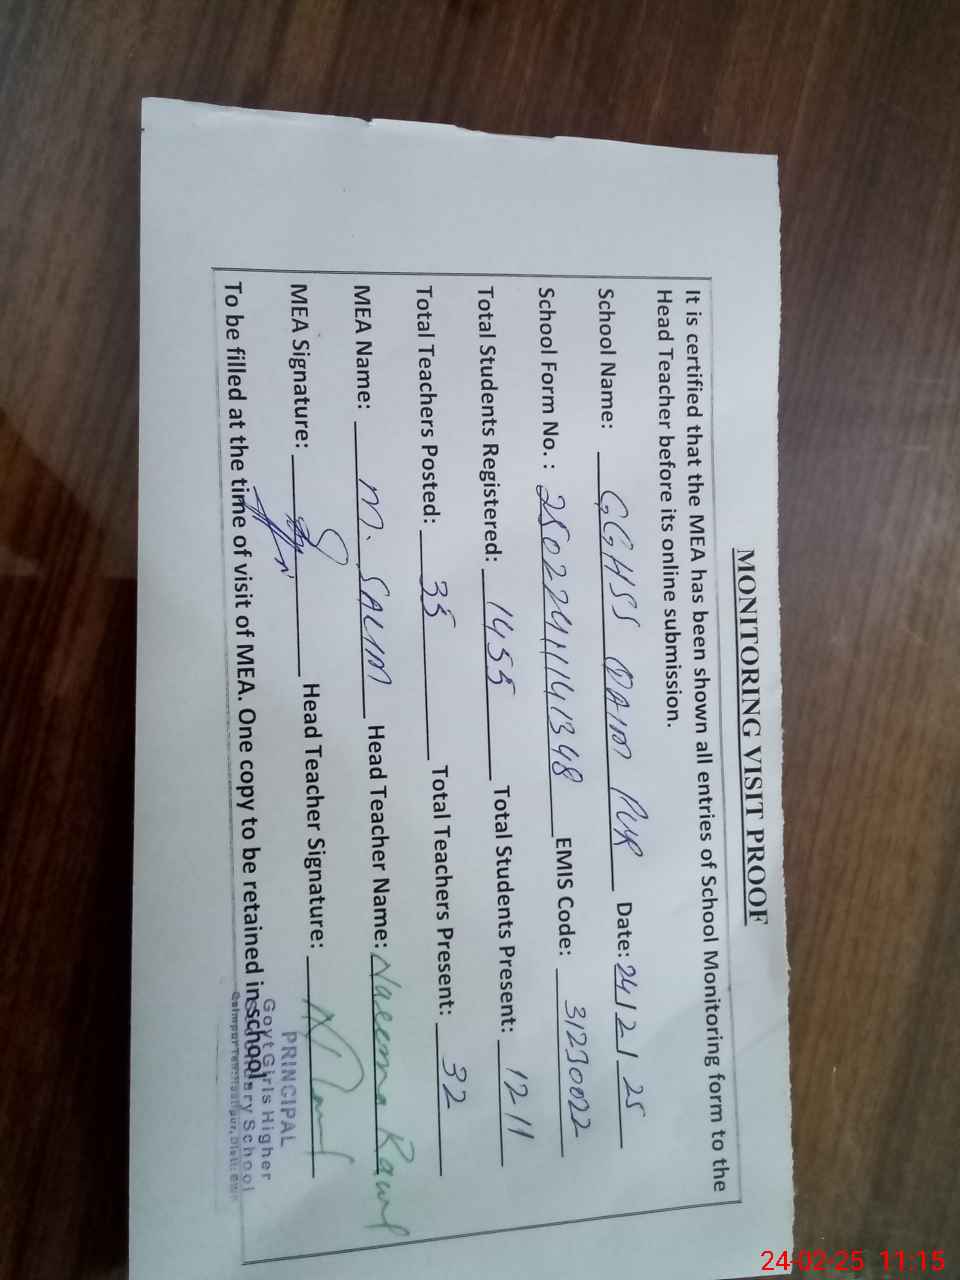 MONITORING VISIT PROOF
It is certified that the MEA has been shown all entries of School Monitoring form to the
Head Teacher before its online submission.
School Name: GGHSS QAIM PUR Date: 24/2/25
School Form No. : 250224111141348 EMIS Code: 31230022
Total Students Registered: 1455 Total Students Present: 1211
Total Teachers Posted: 35 Total Teachers Present: 32
MEA Name: M. SALIM Head Teacher Name: Naeema Kawl
MEA Signature: Head Teacher Signature:
To be filled at the time of visit of MEA. One copy to be retained in school.
PRINCIPAL
Govt Girls Higher
Secondary School
24-02-25 11:15